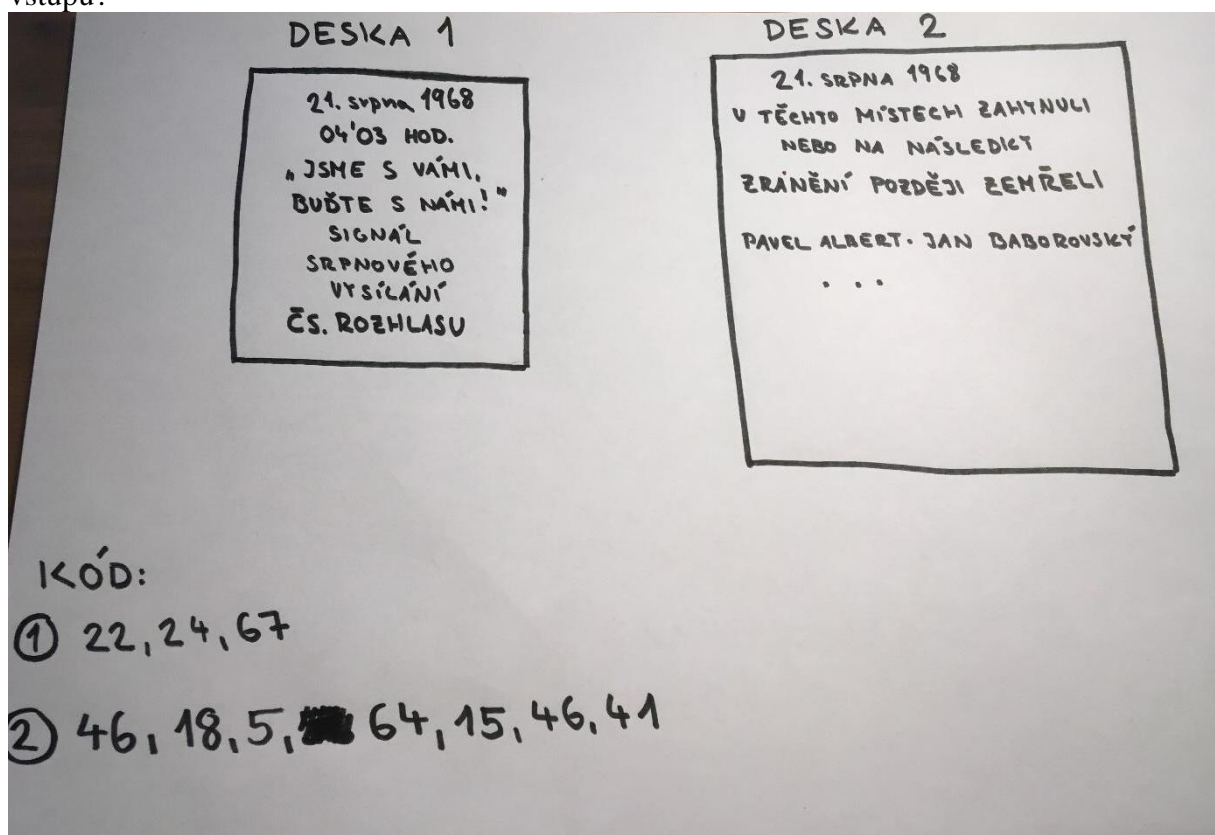 vstupu?
DESKA 1
21. srpna 1968
04'03 HOD.
„JSME S VÁMI,
BUĎTE S NÁMI!"
SIGNÁL
SRPNOVÉHO
VYSÍLÁNÍ
ČS. ROZHLASU
DESKA 2
21. SRPNA 1968
V TĚCHTO MÍSTECH ZAHYNULI
NEBO NA NÁSLEDKY
ZRANĚNÍ POZDĚJI ZEMŘELI
PAVEL ALBERT · JAN BABOROVSKÝ
...
KÓD:
1 22, 24, 67
2 46, 18, 5, 64, 15, 46, 41